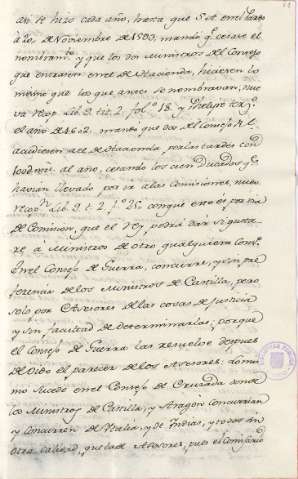 así se hizo cada año, hasta que S. M. en el
de Noviembre de 1583, mandó q. cesase el
nombram.to y que los dos Ministros del Consejo
que entrasen en el de Hacienda, hiciesen lo
mismo que los que antes se nombravan, nue
va Recop. Lib. 9. tit. 2. fol. 18. y Phelipe
el año de 1602. mandó que dos del Consejo R.l
acudiesen al de Hacienda por las tardes con
al año, cesando los cien Ducados q. se
havian llevado por va a las Comisiones, nueva
Recop.n Lib. 9. t. 2. f.o 25. conque esto es por via
de Comision, que el Rey podrá dár si gusta
re, a Ministros de otro qualquiera Cons.o
En el Consejo de Guerra, concurre, y en pre
ferencia de los Ministros de Castilla, pero
solo por Asesores de las cosas de Justicia
y sin facultad de determinarlas, porque
el Consejo de Guerra las resuelve despues
de oido el parecer de los Asesores. Lo mis
mo sucede en el Consejo de Cruzada donde
los Ministros de Castilla, y Aragon concurrian
y concurren de Italia, y de Indias, y todos sin
otra calidad, que la de Asesores, pues el Comisario